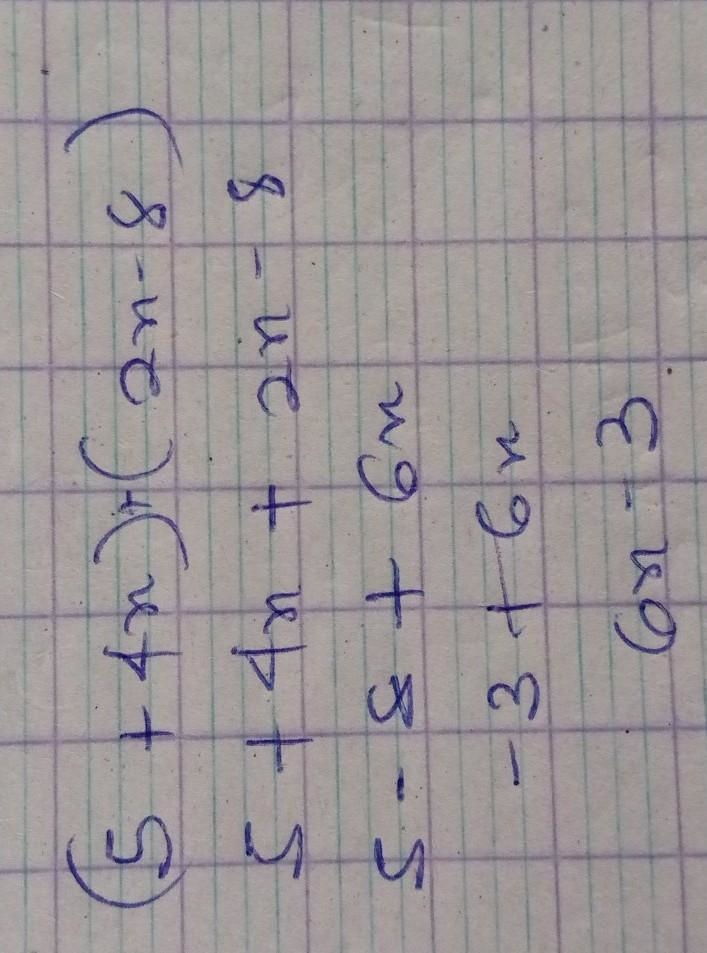 (5 + 4x)+(2x - 8)
5 + 4x + 2x - 8
5 - 8 + 6x
- 3 + 6x
6x - 3